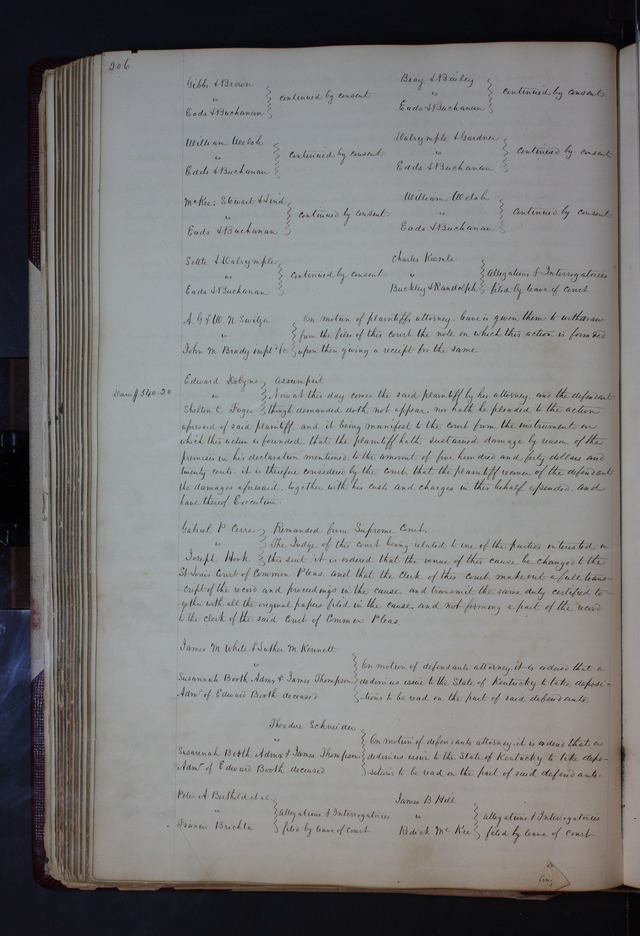 206
Gibbs & Brown
"
Eads & Buchanan
continued by consent
Bray & Bailey
"
Eads & Buchanan
continued by consent
William Walsh
"
Eads & Buchanan
continued by consent
Dalrymple & Gardner
"
Eads & Buchanan
continued by consent
McKee, Stewart & Lind
"
Eads & Buchanan
continued by consent
William Welsh
"
Eads & Buchanan
continued by consent
Settle & Dalrymple
"
Eads & Buchanan
continued by consent
Charles Keemle
"
Buckley & Randolph
allegations & Interrogatories
filed by leave of court
A. G & W. N Switzer
"
John M. Brady impl &c
On motion of plaintiffs attorney leave is given them to withdraw
from the files of this court the note on which this action is founded
upon then giving a receipt for the same
Dam $540.20
Edward Dobyns
"
Shelton C
assumpsit
Now at this day comes the said plaintiff by his attorney, and the defendant
though demanded doth not appear, nor hath he pleaded to the action
aforesaid of said plaintiff, and it being manifest to the court from the instrument on
which this action is founded, that the plaintiff hath sustained damage by reason of the
premises in his declaration mentioned, to the amount of five hundred and forty dollars and
twenty cents, it is therefore considered by the court, that the plaintiff recover of the defendant
the damages aforesaid, together with his costs and charges in this behalf expended, and
have thereof Execution.
Gabriel P Cerre
"
Joseph Hook
Remanded from Supreme Court.
The Judge of this court being related to one of the parties interested in
this suit it is ordered that the venue of this cause be changed to the
St Louis Court of Common Pleas, and that the clerk of this court make out a full trans-
cript of the record and proceedings in the cause, and transmit the same duly certified to-
gether with all the original papers filed in the cause, and not forming a part of the record
to the clerk of the said Court of Common Pleas
James M White & Luther M Kennett
"
Susannah Booth Admx & James Thompson
Admr of Edward Booth deceased
On motion of defendants attorney, it is ordered that a
dedimus issue to the State of Kentucky to take deposi-
tions to be read on the part of said defendants.
Theodore Schneider
"
Susannah Booth Admx & James Thompson
Admr of Edward Booth deceased
On motion of defendants attorney, it is ordered that a
dedimus issue to the State of Kentucky to take depo-
sitions to be read on the part of said defendants.
Peter A Berthold et al
"
Francis Brichta
allegations & Interrogatories
filed by leave of court
James B Hill
"
Redick McKee
allegations & Interrogatories
filed by leave of court